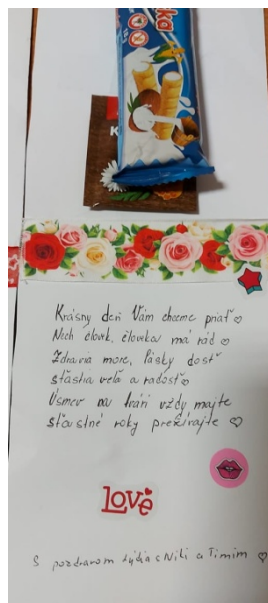 ka
K
Krásny deň Vám chceme priať
Nech človek človeka má rád
Zdravia more, lásky dosť
šťastia veľa a radosť
Úsmev na tvári vždy majte
šťastné roky prežívajte
Love
S pozdravom Lýdia s Niki a Timim